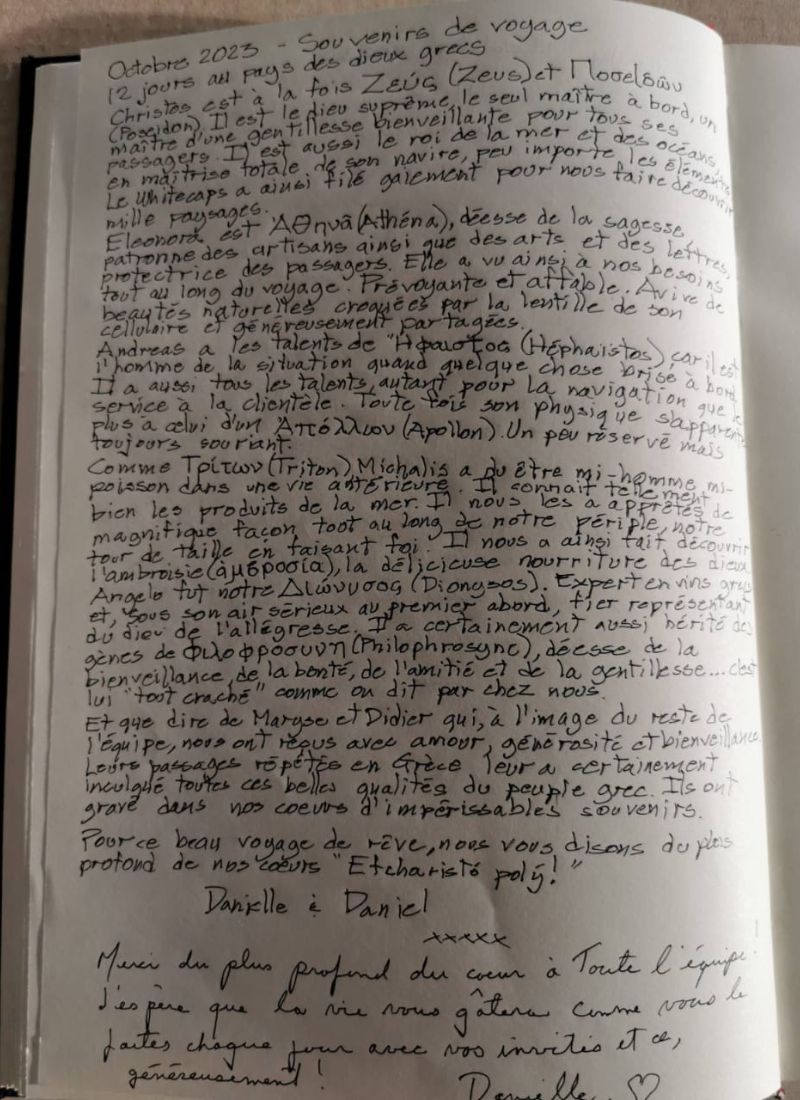 Octobre 2023 - Souvenirs de voyage
12 jours au pays des dieux grecs
Christos est à la fois Ζεύς (Zeus) et Ποσειδών
(Poseidon). Il est le dieu suprême, le seul maître à bord, un
maître d'une gentillesse bienveillante pour tous ses
passagers. Il est aussi le roi de la mer et des océans,
en maîtrise totale de son navire, peu importe les éléments.
Le Whitecaps a ainsi filé galement pour nous faire découvrir
mille paysages.
Eleonora est Αθηνά (Athéna), déesse de la sagesse,
patronne des artisans ainsi que des arts et des lettres,
protectrice des passagers. Elle a vu ainsi à nos besoins
tout au long du voyage. Prévoyante et affable. Avive de
beautés naturelles croquées par la lentille de son
cellulaire et généreusement partagées.
Andreas a les talents de Ηφαιστος (Héphaistos) car il est
l'homme de la situation quand quelque chose brise à bord.
Il a aussi tous les talents, autant pour la navigation que le
service à la clientèle. Toute fois son physique s'apparente
plus à celui d'un Απόλλων (Apollon). Un peu réservé mais
toujours souriant.
Comme Τρίτων (Triton), Michalis a du être mi-homme mi-
poisson dans une vie antérieure. Il connait tellement
bien les produits de la mer. Il nous les a apprêtés de
magnifique façon, tout au long de notre périple, notre
tour de taille en faisant foi. Il nous a ainsi fait découvrir
l'ambroisie (αμβροσία), la délicieuse nourriture des dieux
Angelo fut notre Διώνυσος (Dionysos). Expert en vins grecs
et, sous son air sérieux au premier abord, fier représentant
du dieu de l'allégresse. Il a certainement aussi hérité des
gènes de Φιλοφρόσυνη (Philophrosyne), déesse de la
bienveillance, de la bonté, de l'amitié et de la gentillesse... c'est
lui "tout craché" comme on dit par chez nous.
Et que dire de Maryse et Didier qui, à l'image du reste de
l'équipe, nous ont reçus avec amour, générosité et bienveillance
Leurs passages répétés en Grèce leur a certainement
inculqué toutes ces belles qualités du peuple grec. Ils ont
gravé dans nos coeurs d'impérissables souvenirs.
Pour ce beau voyage de rêve, nous vous disons du plus
profond de nos coeurs "Efcharistó polý!"
Danielle & Daniel
xxxxx
Merci du plus profond du coeur à Toute l'équipe.
J'espère que la vie vous gâtera comme vous le
faites chaque jour avec vos invités et ce,
généreusement!
Danielle ♡